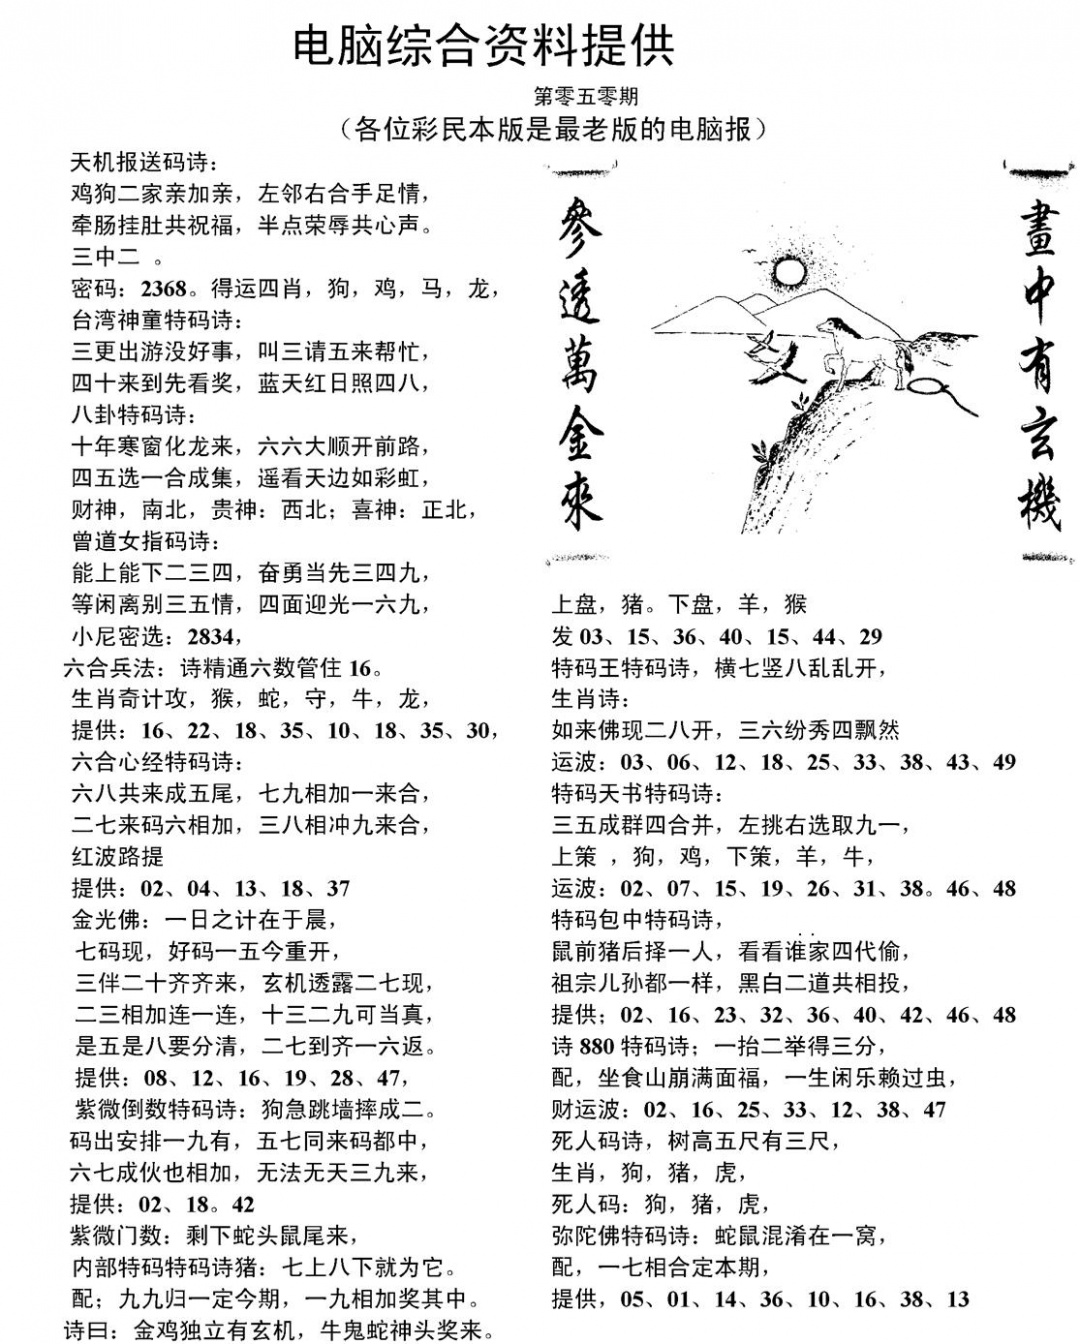 电脑综合资料提供
第零五零期
（各位彩民本版是最老版的电脑报）
天机报送码诗：
鸡狗二家亲加亲，左邻右合手足情，
牵肠挂肚共祝福，半点荣辱共心声。
三中二 。
密码：2368。得运四肖，狗，鸡，马，龙，
台湾神童特码诗：
三更出游没好事，叫三请五来帮忙，
四十来到先看奖，蓝天红日照四八，
八卦特码诗：
十年寒窗化龙来，六六大顺开前路，
四五选一合成集，遥看天边如彩虹，
财神，南北，贵神：西北；喜神：正北，
曾道女指码诗：
能上能下二三四，奋勇当先三四九，
等闲离别三五情，四面迎光一六九，
小尼密选：2834，
六合兵法：诗精通六数管住 16。
生肖奇计攻，猴，蛇，守，牛，龙，
提供：16、22、18、35、10、18、35、30，
六合心经特码诗：
六八共来成五尾，七九相加一来合，
二七来码六相加，三八相冲九来合，
红波路提
提供：02、04、13、18、37
金光佛：一日之计在于晨，
七码现，好码一五今重开，
三伴二十齐齐来，玄机透露二七现，
二三相加连一连，十三二九可当真，
是五是八要分清，二七到齐一六返。
提供：08、12、16、19、28、47，
紫微倒数特码诗：狗急跳墙摔成二。
码出安排一九有，五七同来码都中，
六七成伙也相加，无法无天三九来，
提供：02、18。42
紫微门数：剩下蛇头鼠尾来，
内部特码特码诗猪：七上八下就为它。
配；九九归一定今期，一九相加奖其中。
诗曰：金鸡独立有玄机，牛鬼蛇神头奖来。
參透萬金來
畫中有玄機
上盘，猪。下盘，羊，猴
发 03、15、36、40、15、44、29
特码王特码诗，横七竖八乱乱开，
生肖诗：
如来佛现二八开，三六纷秀四飘然
运波：03、06、12、18、25、33、38、43、49
特码天书特码诗：
三五成群四合并，左挑右选取九一，
上策 ，狗，鸡，下策，羊，牛，
运波：02、07、15、19、26、31、38。46、48
特码包中特码诗，
鼠前猪后择一人，看看谁家四代偷，
祖宗儿孙都一样，黑白二道共相投，
提供；02、16、23、32、36、40、42、46、48
诗 880 特码诗；一抬二举得三分，
配，坐食山崩满面福，一生闲乐赖过虫，
财运波：02、16、25、33、12、38、47
死人码诗，树高五尺有三尺，
生肖，狗，猪，虎，
死人码：狗，猪，虎，
弥陀佛特码诗：蛇鼠混淆在一窝，
配，一七相合定本期，
提供，05、01、14、36、10、16、38、13